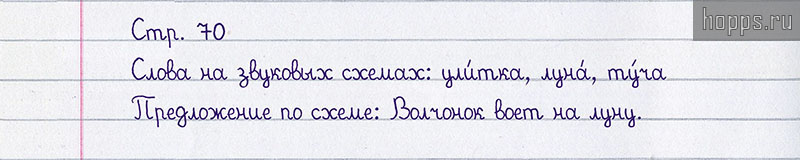 hopps.ru
Стр. 70
Слова на звуковых схемах: ули́тка, луна́, ту́ча
Предложение по схеме: Волчонок воет на луну.